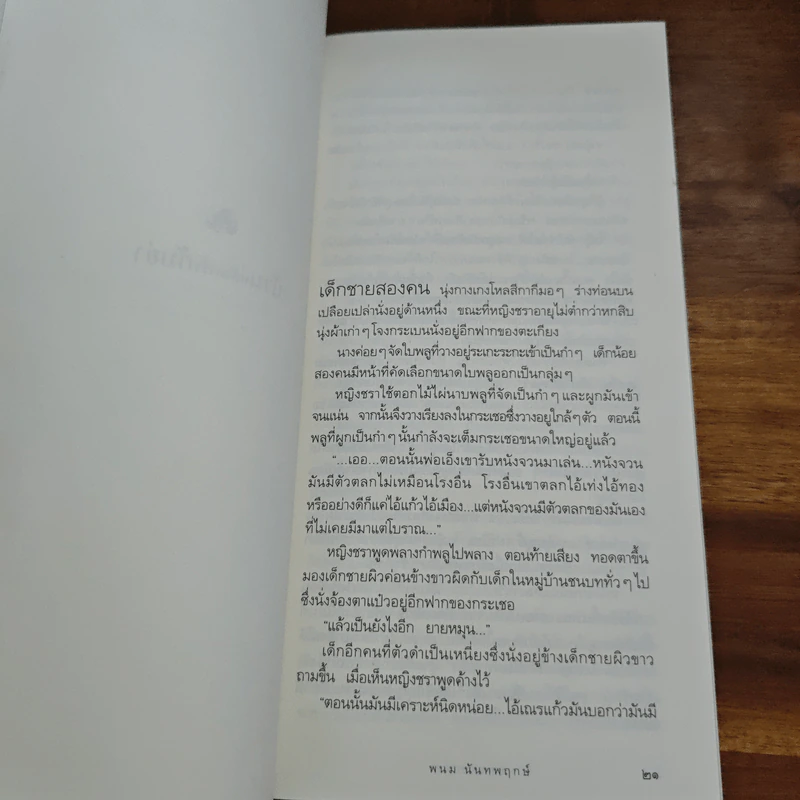 เด็กชายสองคน นุ่งกางเกงโหลสีกากีมอๆ ร่างท่อนบน
เปลือยเปล่านั่งอยู่ด้านหนึ่ง ขณะที่หญิงชราอายุไม่ต่ำกว่าหกสิบ
นุ่งผ้าเก่าๆโจงกระเบนนั่งอยู่อีกฟากของตะเกียง
นางค่อยๆจัดใบพลูที่วางอยู่ระเกะระกะเข้าเป็นกำๆ เด็กน้อย
สองคนมีหน้าที่คัดเลือกขนาดใบพลูออกเป็นกลุ่มๆ
หญิงชราใช้ตอกไม้ไผ่นาบพลูที่จัดเป็นกำๆและผูกมันเข้า
จนแน่น จากนั้นจึงวางเรียงลงในกระเชอซึ่งวางอยู่ใกล้ๆตัว ตอนนี้
พลูที่ผูกเป็นกำๆนั้นกำลังจะเต็มกระเชอขนาดใหญ่อยู่แล้ว
"...เออ...ตอนนั้นพ่อเอ็งเขารับหนังจวนมาเล่น...หนังจวน
มันมีตัวตลกไม่เหมือนโรงอื่น โรงอื่นเขาตลกไอ้เท่งไอ้ทอง
หรืออย่างดีก็แค่ไอ้แก้วไอ้เมือง...แต่หนังจวนมีตัวตลกของมันเอง
ที่ไม่เคยมีมาแต่โบราณ..."
หญิงชราพูดพลางกำพลูไปพลาง ตอนท้ายเสียง ทอดตาขึ้น
มองเด็กชายผิวค่อนข้างขาวผิดกับเด็กในหมู่บ้านชนบททั่วๆไป
ซึ่งนั่งจ้องตาแป๋วอยู่อีกฟากของกระเชอ
"แล้วเป็นยังไงอีก ยายหมุน..."
เด็กอีกคนที่ตัวดำเป็นเหนี่ยงซึ่งนั่งอยู่ข้างเด็กชายผิวขาว
ถามขึ้น เมื่อเห็นหญิงชราพูดค้างไว้
"ตอนนั้นมันมีเคราะห์นิดหน่อย...ไอ้เณรแก้วมันบอกว่ามันมี
พนม นันทพฤกษ์
๒๑